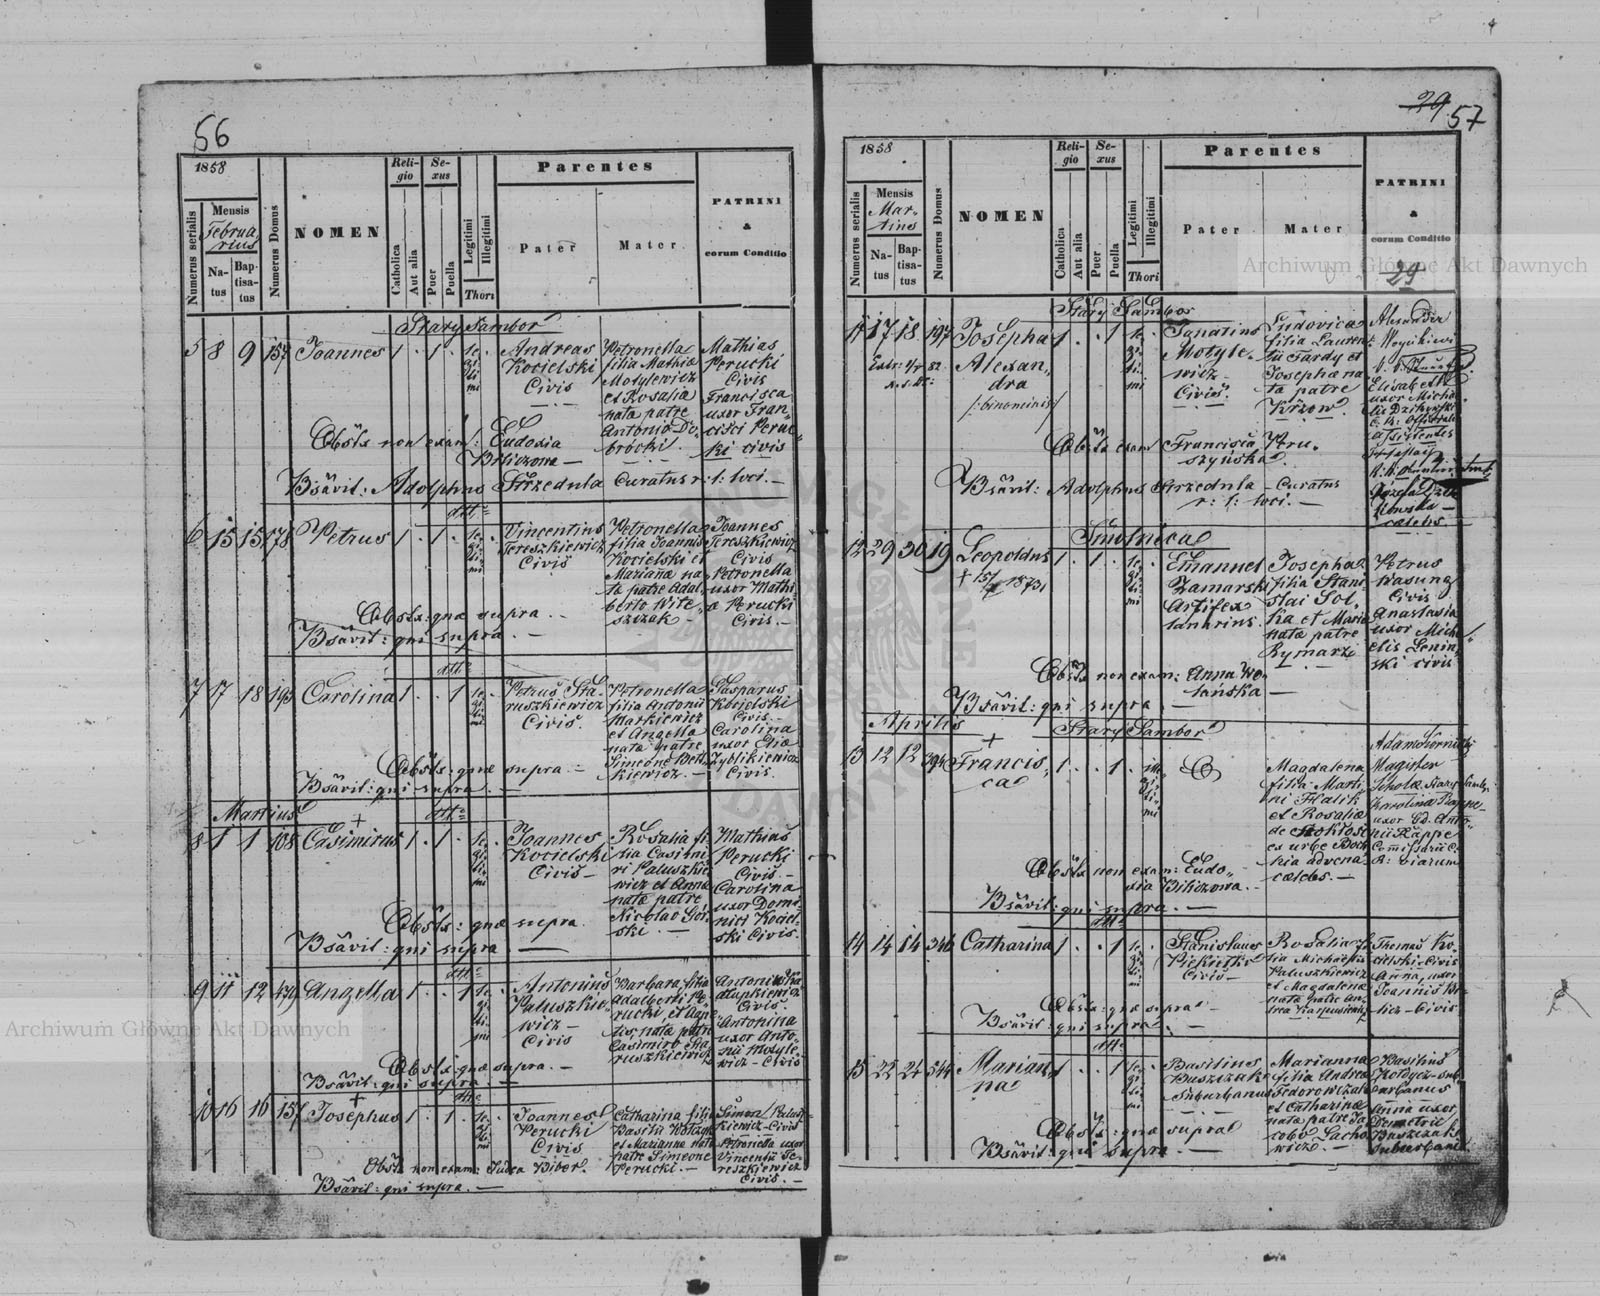 56
1858
Numerus serialis
Mensis
Februa
rius
Na-
tus
Bap-
tisa-
tus
Numerus Domus
NOMEN
Reli-
gio
Catholica
Aut alia
Se-
xus
Puer
Puella
Legitimi
Illegitimi
Thori
Parentes
Pater
Mater
PATRINI
&
eorum Conditio
Stary Sambor
5 8 9 157 Joannes 1 . 1 . le
gi
ti
mi
Andreas
Kocielski
Civis
Petronella
filia Mathiæ
Motylewicz
et Rosalia
nata patre
Antonio Do
brocki.
Mathias
Perucki
Civis
Francisca
uxor Fran
cisci Peruc
ki civis
Obsts non exam: Eudoxia
Biliczowa —
Bsāvit: Adolphus Strzedula Curatus r: l: loci. —
dtto
6 15 15 178 Petrus 1 . 1 . le
gi
ti
mi
Vincentius
Tereszkiewicz
Civis
Petronella
filia Joannis
Kocielski et
Marianæ na
ta patre Adal
berto Wite
szczak —
Joannes
Tereszkiewicz
Civis
Petronella
uxor Mathi
æ Perucki
Civis. —
Obstx: quæ supra. —
Bsāvit: qui supra. —
dtto
7 17 18 193 Carolina 1 . . 1 le
gi
ti
mi
Petrus Sta
ruszkiewicz
Civis.
Petronella
filia Antonii
Markiewicz
et Angella
nata patre
Simeone
Gasparus
Kocielski
Civis —
Carolina
uxor Eliæ
Zyblikiewicz
Civis.
Obsts: quæ supra. —
Bsāvit: qui supra. —
Martius
dtto
8 1 1 108 Casimirus 1 . 1 . le
gi
ti
mi
Joannes
Kocielski
Civis —
Rosalia fi
lia Casimi
ri Paluszkie
wicz et Anna
nata patre
Nicolao Gór
ski. —
Mathias
Perucki
Civis. —
Carolina
uxor Domi
nici Kociel
ski Civis. —
Obsts: quæ supra.
Bsāvit: qui supra. —
dtto
9 11 12 Angella 1 . . 1 le
gi
ti
mi
Antonius
Paluszkie
wicz —
Civis
Barbara filia
Adalberti Pe
rucki, et
nata patre
Casimiro Sta
ruszkiewicz
Antonius
Civis
Antonina
uxor Anto
nii Motyle
wicz — Civis
Obstx quæ supra. —
Bsāvit: qui supra. —
dtto
10 16 16 157 Josephus 1 . 1 . le
gi
ti
mi
Joannes
Perucki
Civis
Catharina filia
Basilii
et Marianna nata
patre Simeone
Perucki. —
Simon Palusz
kiewicz — Civis
Petronella uxor
Vincentii Te
reszkiewicz
Civis. —
Obstx non exam: Judea Biber.
Bsāvit: qui supra. —
29 57
1858
Numerus serialis
Mensis
Mar-
tius
Na-
tus
Bap-
tisa-
tus
Numerus Domus
NOMEN
Reli-
gio
Catholica
Aut alia
Se-
xus
Puer
Puella
Legitimi
Illegitimi
Thori
Parentes
Pater
Mater
PATRINI
&
eorum Conditio
29
Archiwum Główne Akt Dawnych
Stary Sambor
11 17 18 197 Josepha
Alexan
dra
/:binominis:/
1 . . 1 le
gi
ti
mi
Ignatius
Motyle
wicz —
Civis.
Ludovica
filia Lauren
tii Tardy et
Josepha na
ta patre
Krżow.
Alexander
Elisabeth
uxor Micha
elis
assistentes
Józefa
cælebs —
Obstx exam Francisca Peru
szyńska.
Bsāvit: Adolphus Strzedula — Curatus
r: l: loci. —
Smolnica
12 29 30 19 Leopoldus
1 . 1 . le
gi
ti
mi
Emanuel
Zamarski
Artifex
Petrus
Wasung
Civis
Anastasia
uxor Micha
elis Lenin
ski civis
Josepha
filia Stani
slai Sol
ka et Maria
nata patre
Rymarz
Obstx non exam: Anna Wo
lańska —
Bsāvit: qui supra —
Aprilis
Stary Sambor
13 12 12 Francis
ca
1 . . 1
Magdalena
filia Marti
ni Halik
et Rosalia
ex urbe Boch
nia advena
cælebs. —
Adam
Magister
Scholæ Stary Samb.
Karolina Rappe
uxor Ed. Anto
nii Rappe
viarum
Obstx non exam: Eudo
xia Biliczowa. —
Bsāvit: qui supra. —
dtto
14 14 14 346 Catharina 1 . . 1 le
gi
ti
mi
Stanislaus
Civis —
Rosalia fi
lia Michaelis
Paluszkiewicz
et Magdalena
nata patre An
drea
Thomas Ko
cielski — Civis
Anna uxor
Joannis
Civis
Obstx: quæ supra —
Bsāvit: qui supra. —
dtto
15 22 24 544 Marian
na
1 . . 1 le
gi
ti
mi
Basilius
Buszczak
Suburbanus
Marianna
filia Andrea
Fedorowicz
et Catharina
nata patre Ja
cobo Lacho
wicz. —
Basilius
Kotdycz — sub
urbanus
Anna uxor
Demetrii
Buszczak
suburbani.
Obstx: quæ supra
Bsāvit: qui supra. —
Archiwum Główne Akt Dawnych